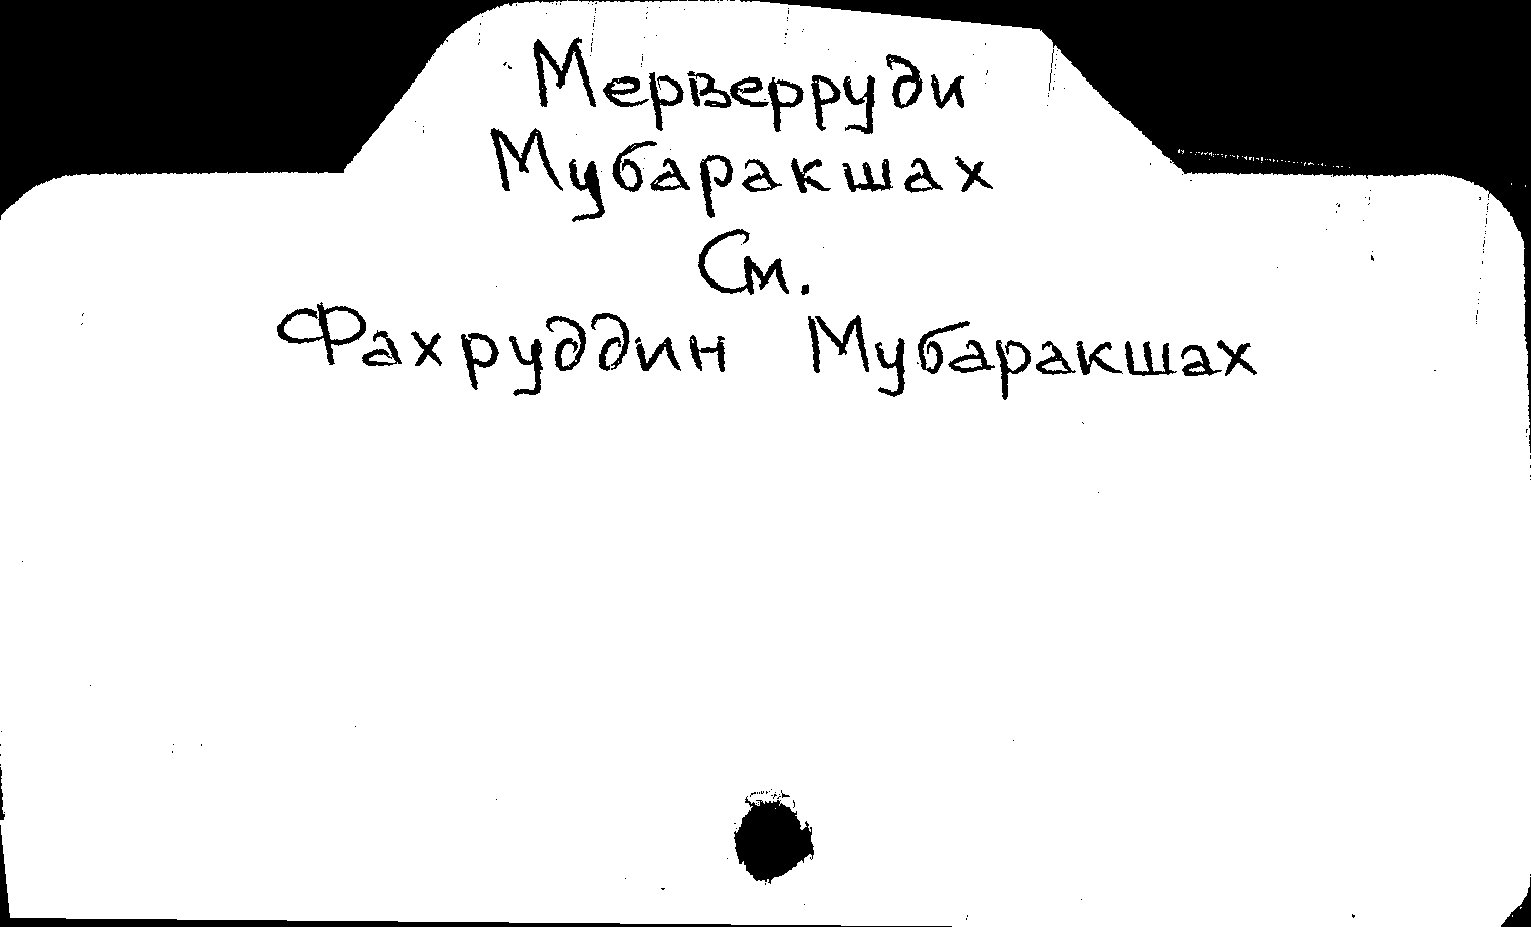 Мерверруди
Мубаракшах
См.
Фахруддин Мубаракшах